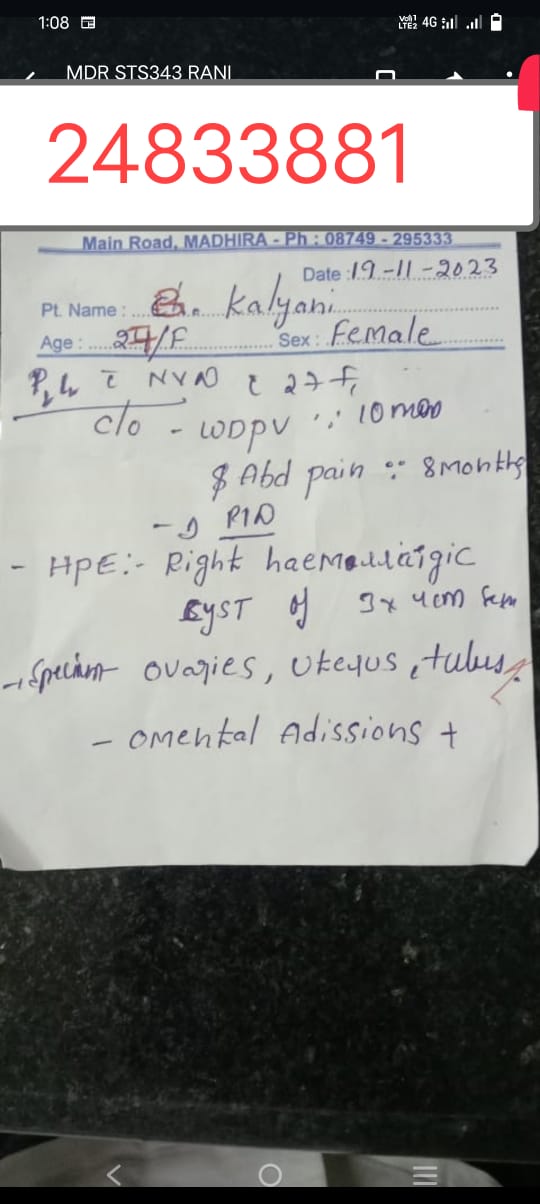 1:08 Vo) 1 LTE2 4G
MDR STS343 RANI
24833881
Main Road, MADHIRA - Ph : 08749 - 295333
Date : 19-11-2023
Pt. Name : Kalyani
Age : 27/F Sex : Female
NVD 27
c/o - WDPV ∵ 10 mon
$ Abd pain ∵ 8 Months
- PID
- HPE:- Right haemorraigic
cyst of 3x 4cm
- Specimen ovaries, Uterus, tubes
- omental Adissions +